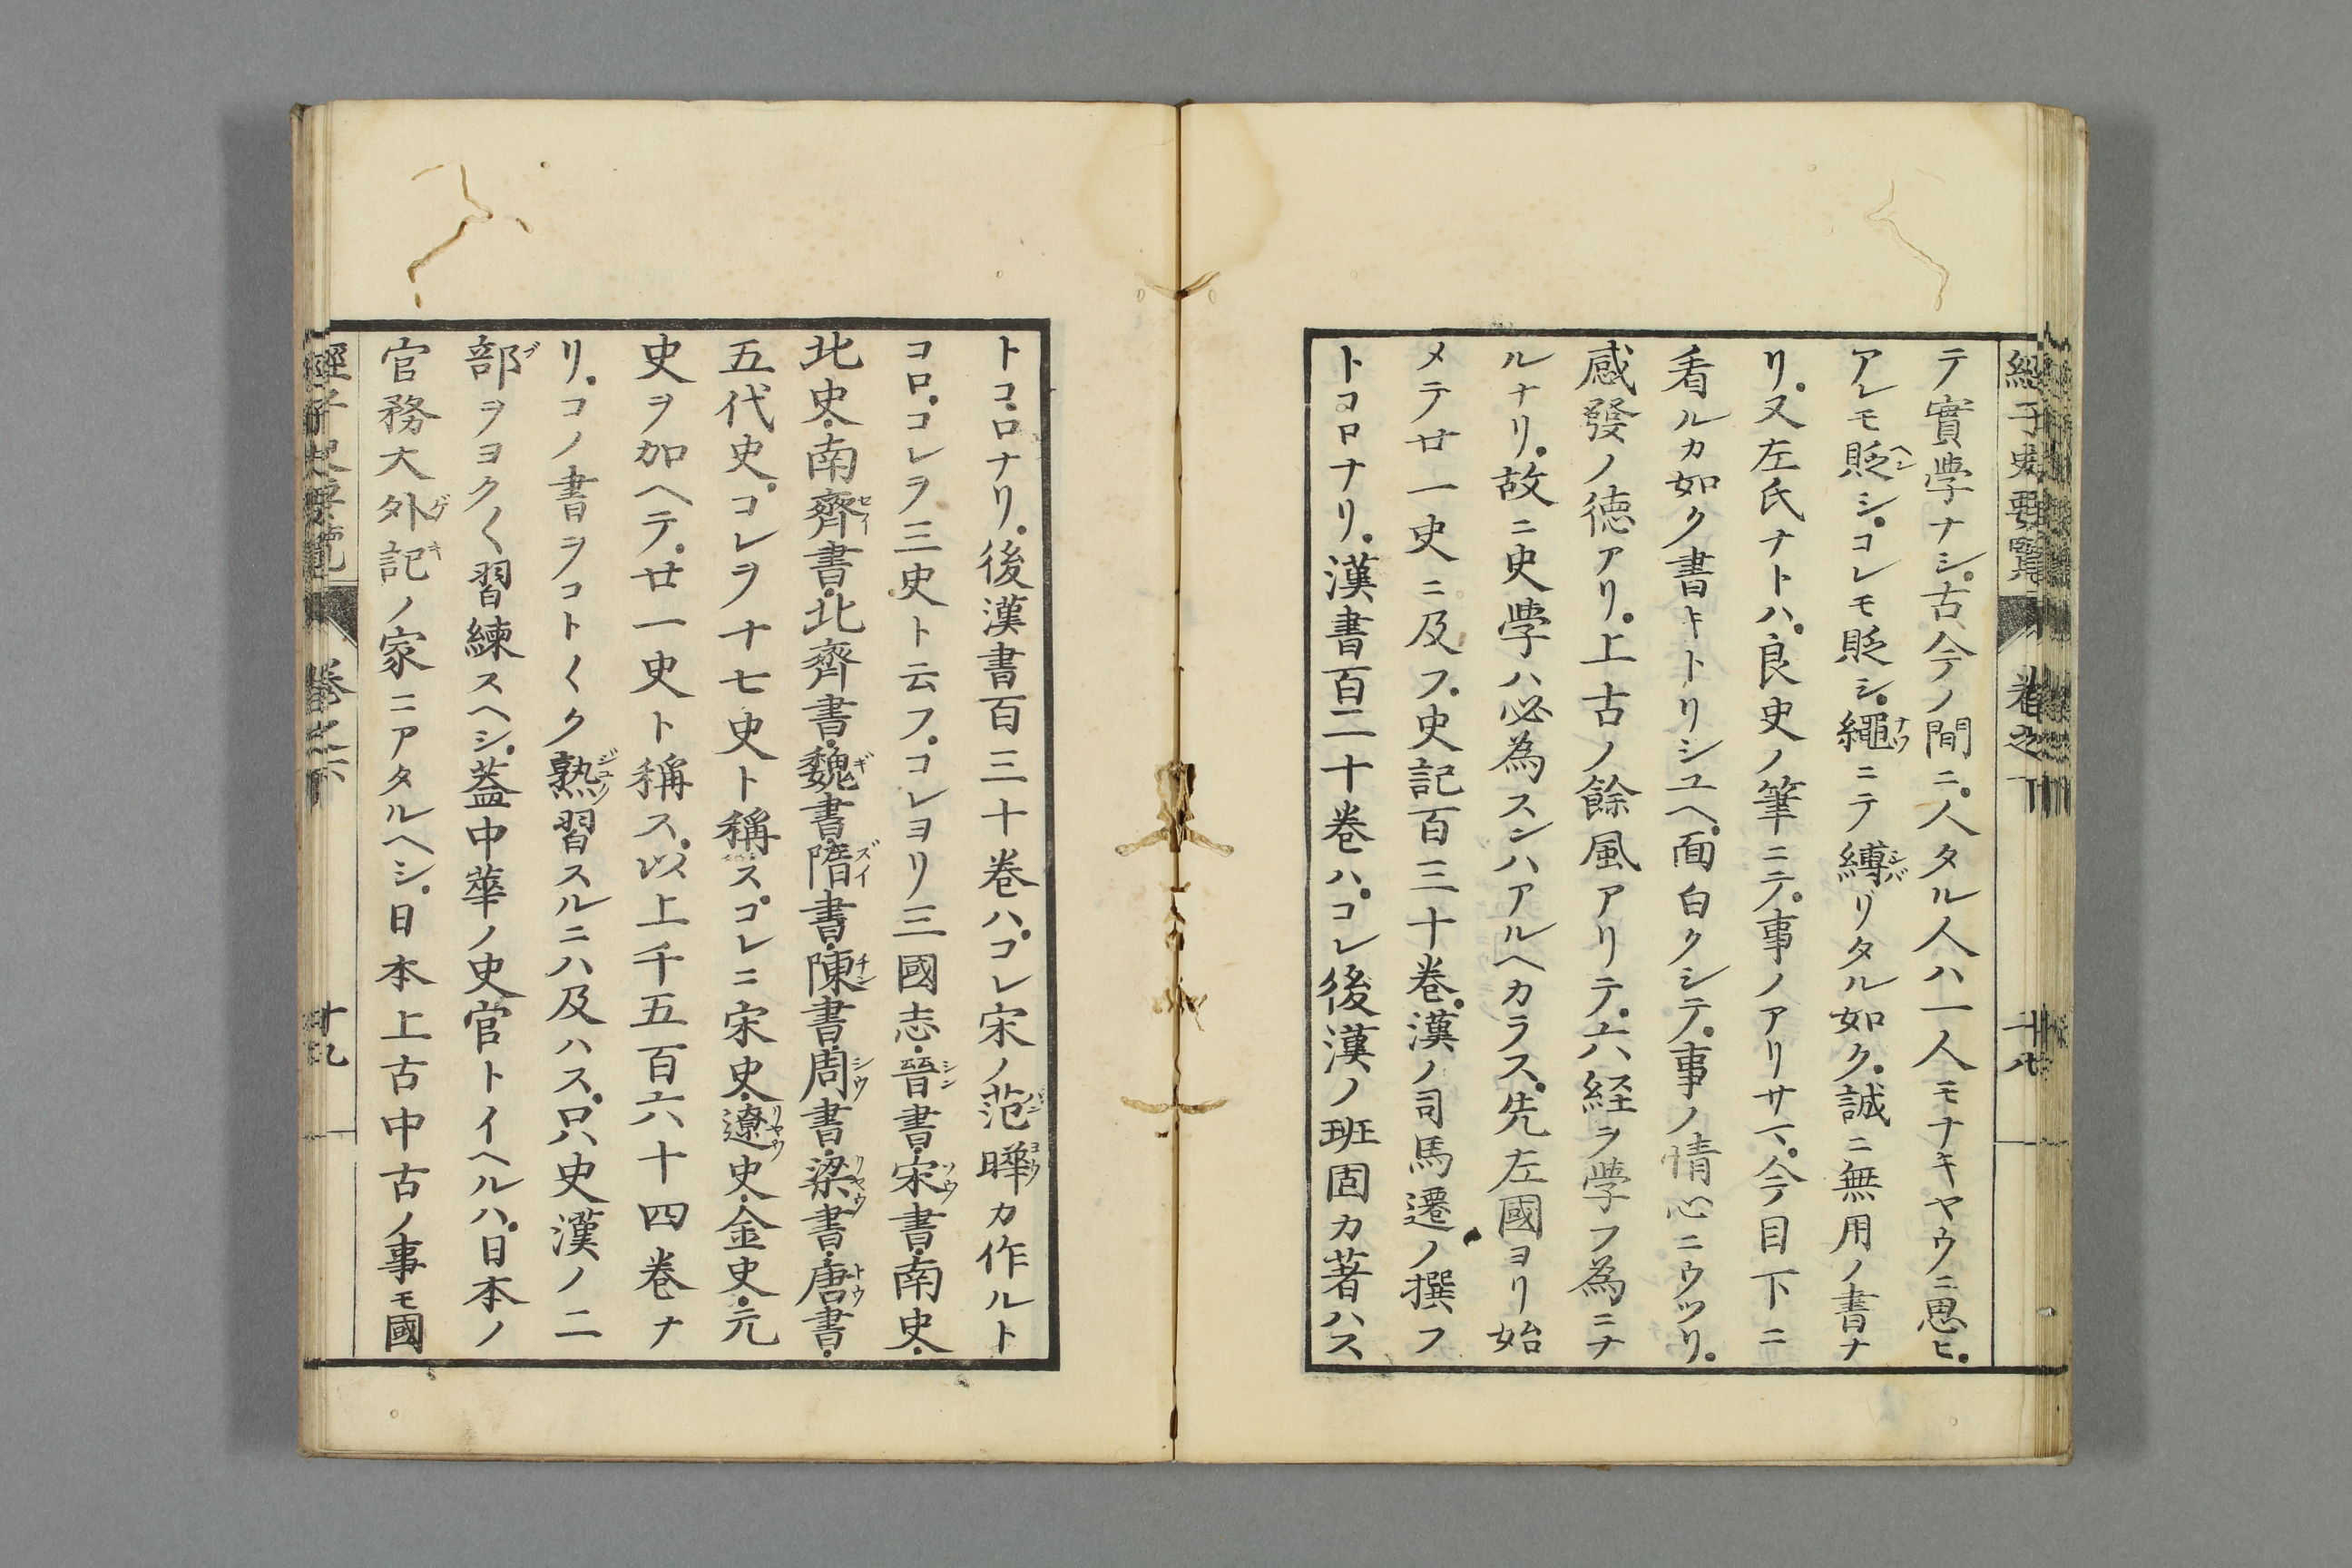 經子史要覽 卷之下
テ實學ナシ。古今ノ間ニ。人タル人ハ一人モナキヤウニ思ヒ。
アレモ貶シ。コレモ貶シ。繩ニテ縛リタル如ク。誠ニ無用ノ書ナ
リ。又左氏ナトハ。良史ノ筆ニテ。事ノアリサマ。今目下ニ
看ルカ如ク書キトリシユヘ。面白クシテ。事ノ情心ニウツリ。
感發ノ徳アリ。上古ノ餘風アリテ。六経ヲ学フ為ニナ
ルナリ。故ニ史學ハ必為スンハアルヘカラス。先左國ヨリ始
メテ廿一史ニ及フ。史記百三十卷。漢ノ司馬遷ノ撰フ
トコロナリ。漢書百二十卷ハ。コレ後漢ノ班固カ著ハス
トコロナリ。後漢書百三十卷ハ。コレ宋ノ范曄カ作ルト
コロ。コレヲ三史ト云フ。コレヨリ三國志・晉書・宋書・南史・
北史・南齊書・北齊書・魏書・隋書・陳書・周書・梁書・唐書・
五代史。コレヲ十七史ト稱ス。コレニ宋史・遼史・金史・元
史ヲ加ヘテ。廿一史ト稱ス。以上千五百六十四卷ナ
リ。コノ書ヲコト〱ク熟習スルニハ及ハス。只史漢ノ二
部ヲヨク〱習練スヘシ。蓋中華ノ史官トイヘルハ。日本ノ
官務大外記ノ家ニアタルヘシ。日本上古中古ノ事モ國
經子史要覽 卷之下 廿九